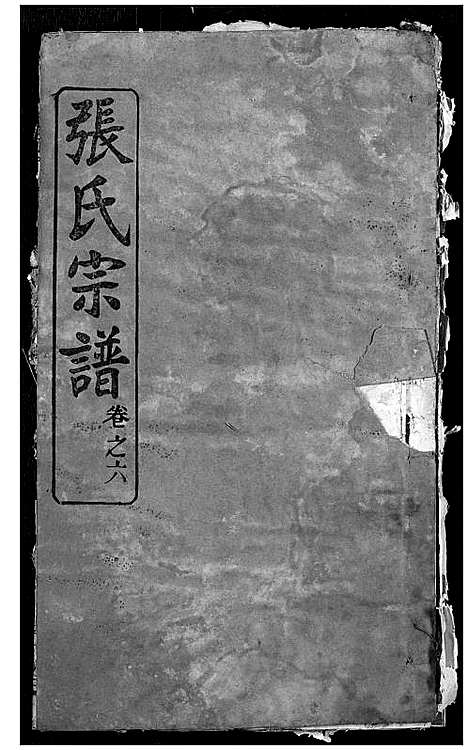 張氏宗譜 卷之六